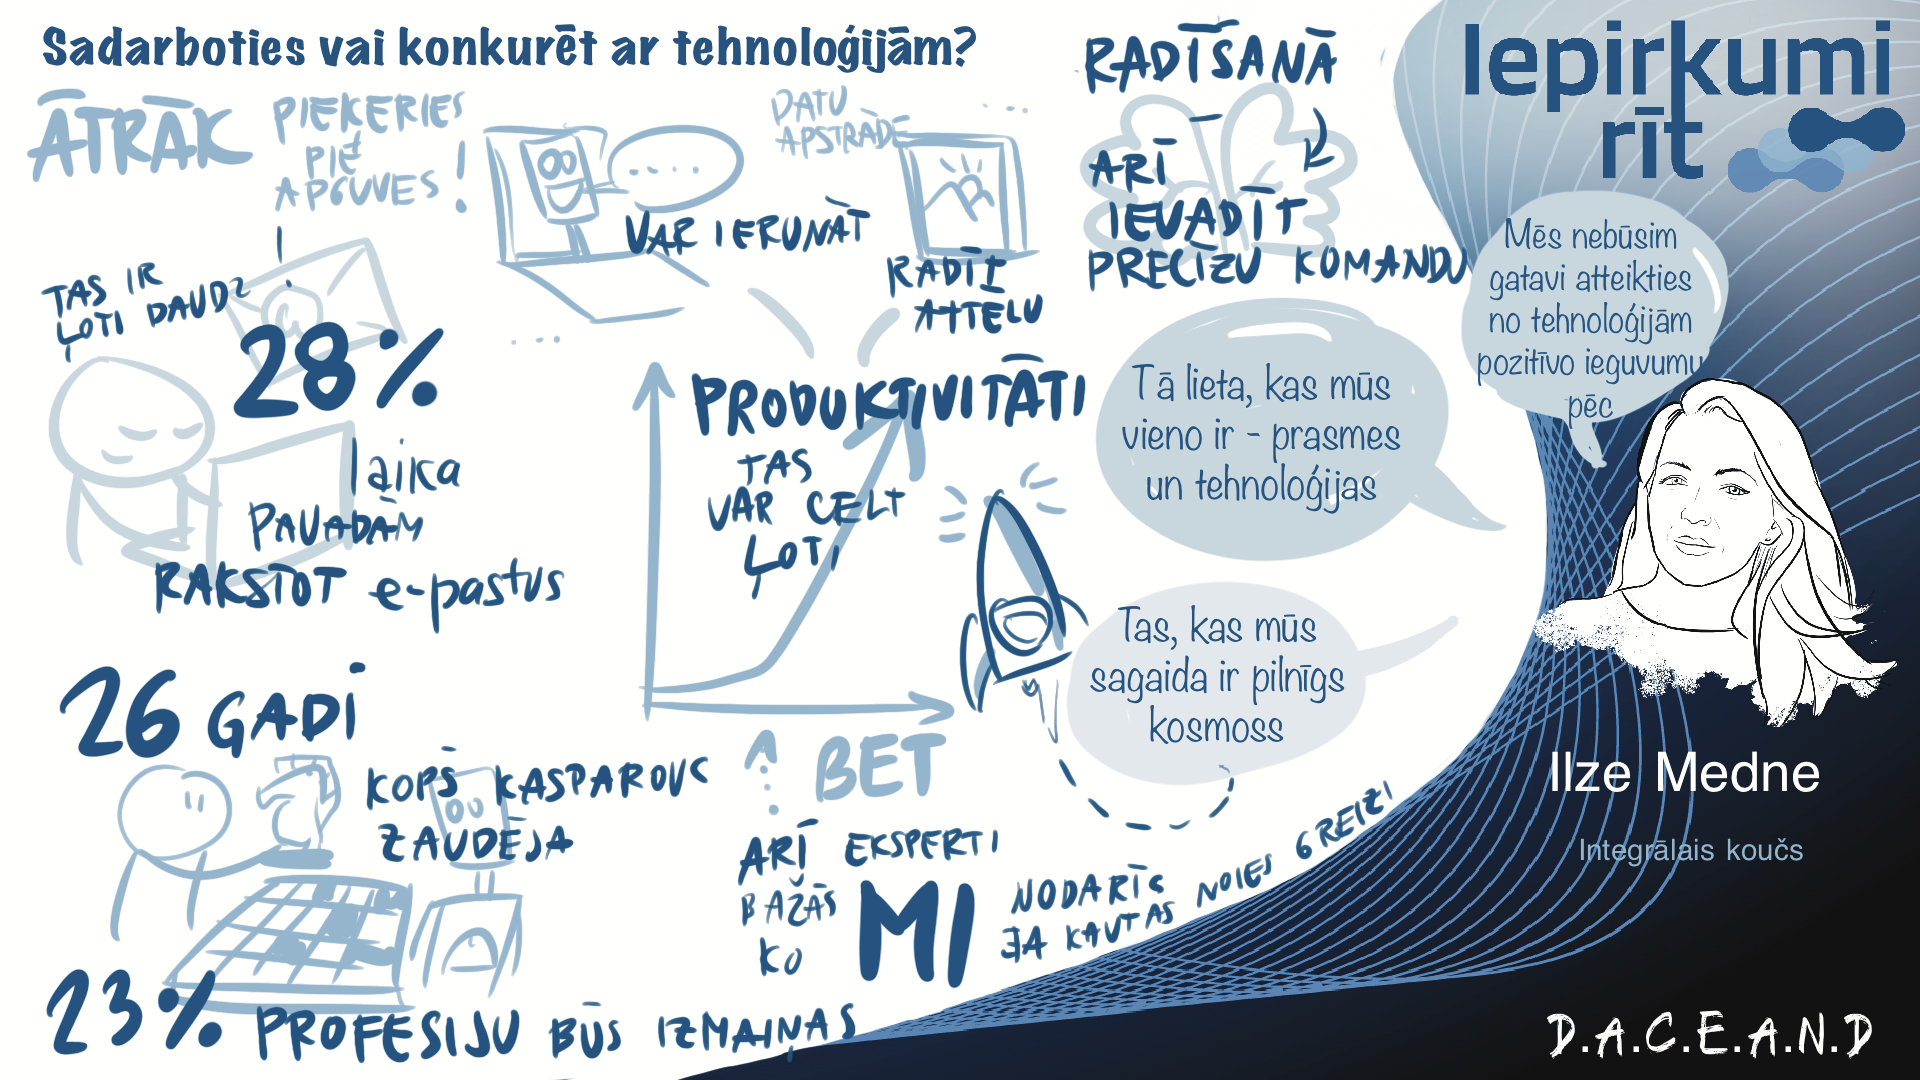 Sadarboties vai konkurēt ar tehnoloģijām?
ĀTRĀK
PIEĶERIES
PIE
APGUVES!
TAS IR
ĻOTI DAUDZ
28%
laika
PAVADĀM
RAKSTOT e-pastus
....
VAR IERUNĀT
DATU
APSTRĀDE
RADĪT
ATTĒLU
RADĪŠANĀ
ARĪ
IEVADĪT
PRECĪZU KOMANDU
PRODUKTIVITĀTI
TAS
VAR CELT
ĻOTI
Tā lieta, kas mūs
vieno ir - prasmes
un tehnoloģijas
Tas, kas mūs
sagaida ir pilnīgs
kosmoss
26 GADI
KOPŠ KASPAROVS
ZAUDĒJA
23% PROFESIJU BŪS IZMAIŅAS
BET
ARĪ EKSPERTI
BAŽĀS
KO
MI
NODARĪS
JA KAUT KAS NOIES GREIZI
Iepirkumi
rīt
Mēs nebūsim
gatavi atteikties
no tehnoloģijām
pozitīvo ieguvumu
pēc
Ilze Medne
Integrālais koučs
D.A.C.E.A.N.D